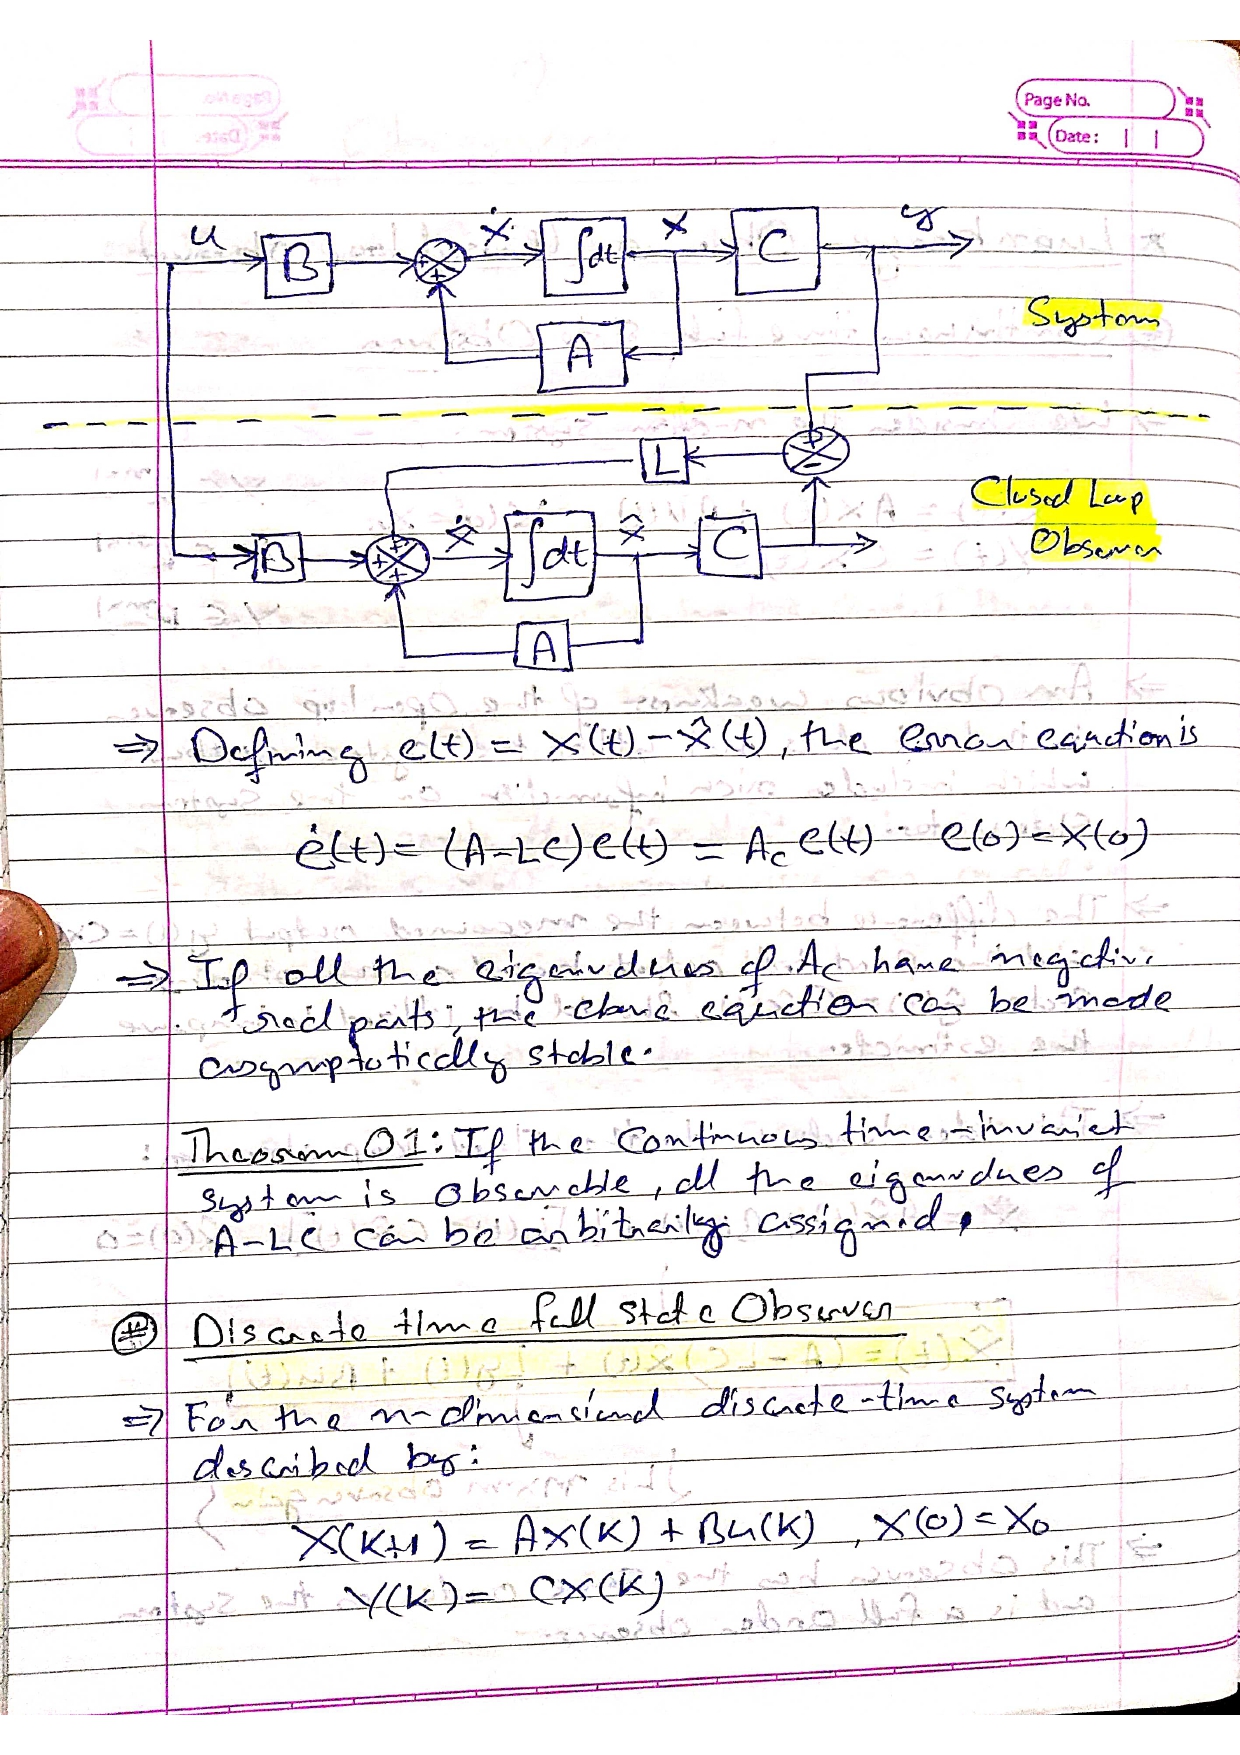 Page No.
Date:
u B ẋ ∫dt x C y
A
System
L
Closed Loop
Observer
B x̂̇ ∫dt x̂ C
A
⇒ Defining e(t) = x(t) - x̂(t), the error equation is
ė(t) = (A-LC)e(t) = Ac e(t) e(0) = x(0)
⇒ If all the eigenvalues of Ac have negative
real parts, the above equation can be made
asymptotically stable.
Theorem 01: If the Continuous time-invariet
system is Observable, all the eigenvalues of
A-LC can be arbitrarily assigned.
Discrete time full state Observer
⇒ For the n-dimensional discrete-time system
described by:
X(K+1) = AX(K) + BU(K), X(0) = X0
Y(K) = CX(K)